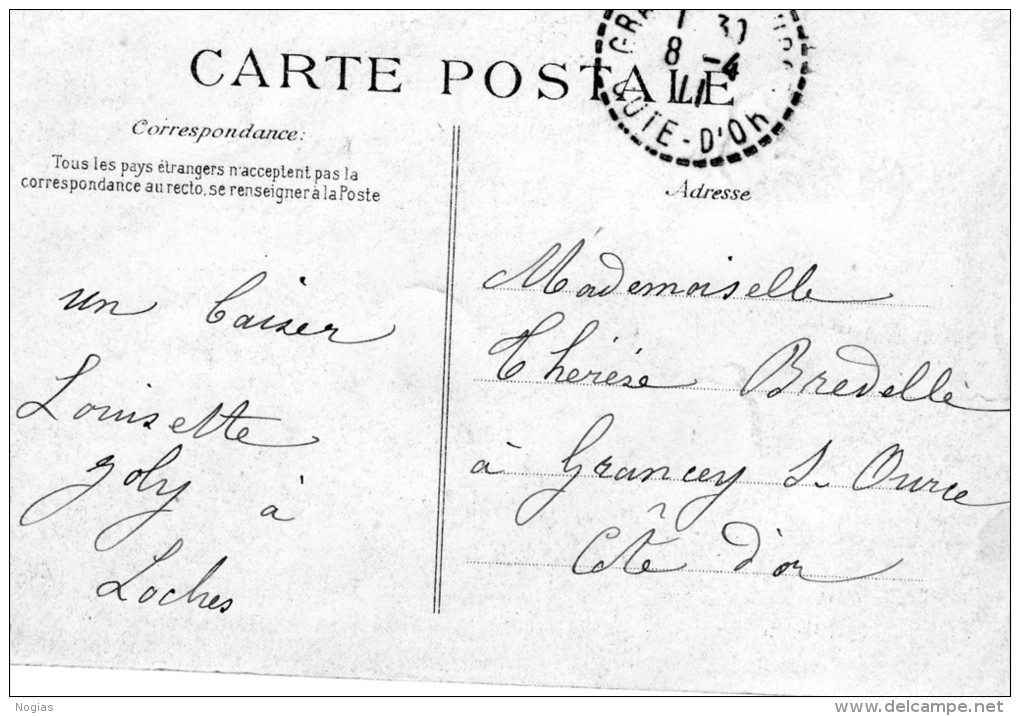 CARTE POSTALE
8 -4
11
D'OR
Correspondance:
Tous les pays étrangers n'acceptent pas la
correspondance au recto, se renseigner à la Poste
Adresse
un baiser
Louisette
Joly à
Loches
Mademoiselle
Thérèse Bredelle
à Grancey s. Ource
Côte d'or
Nogias
www.delcampe.net